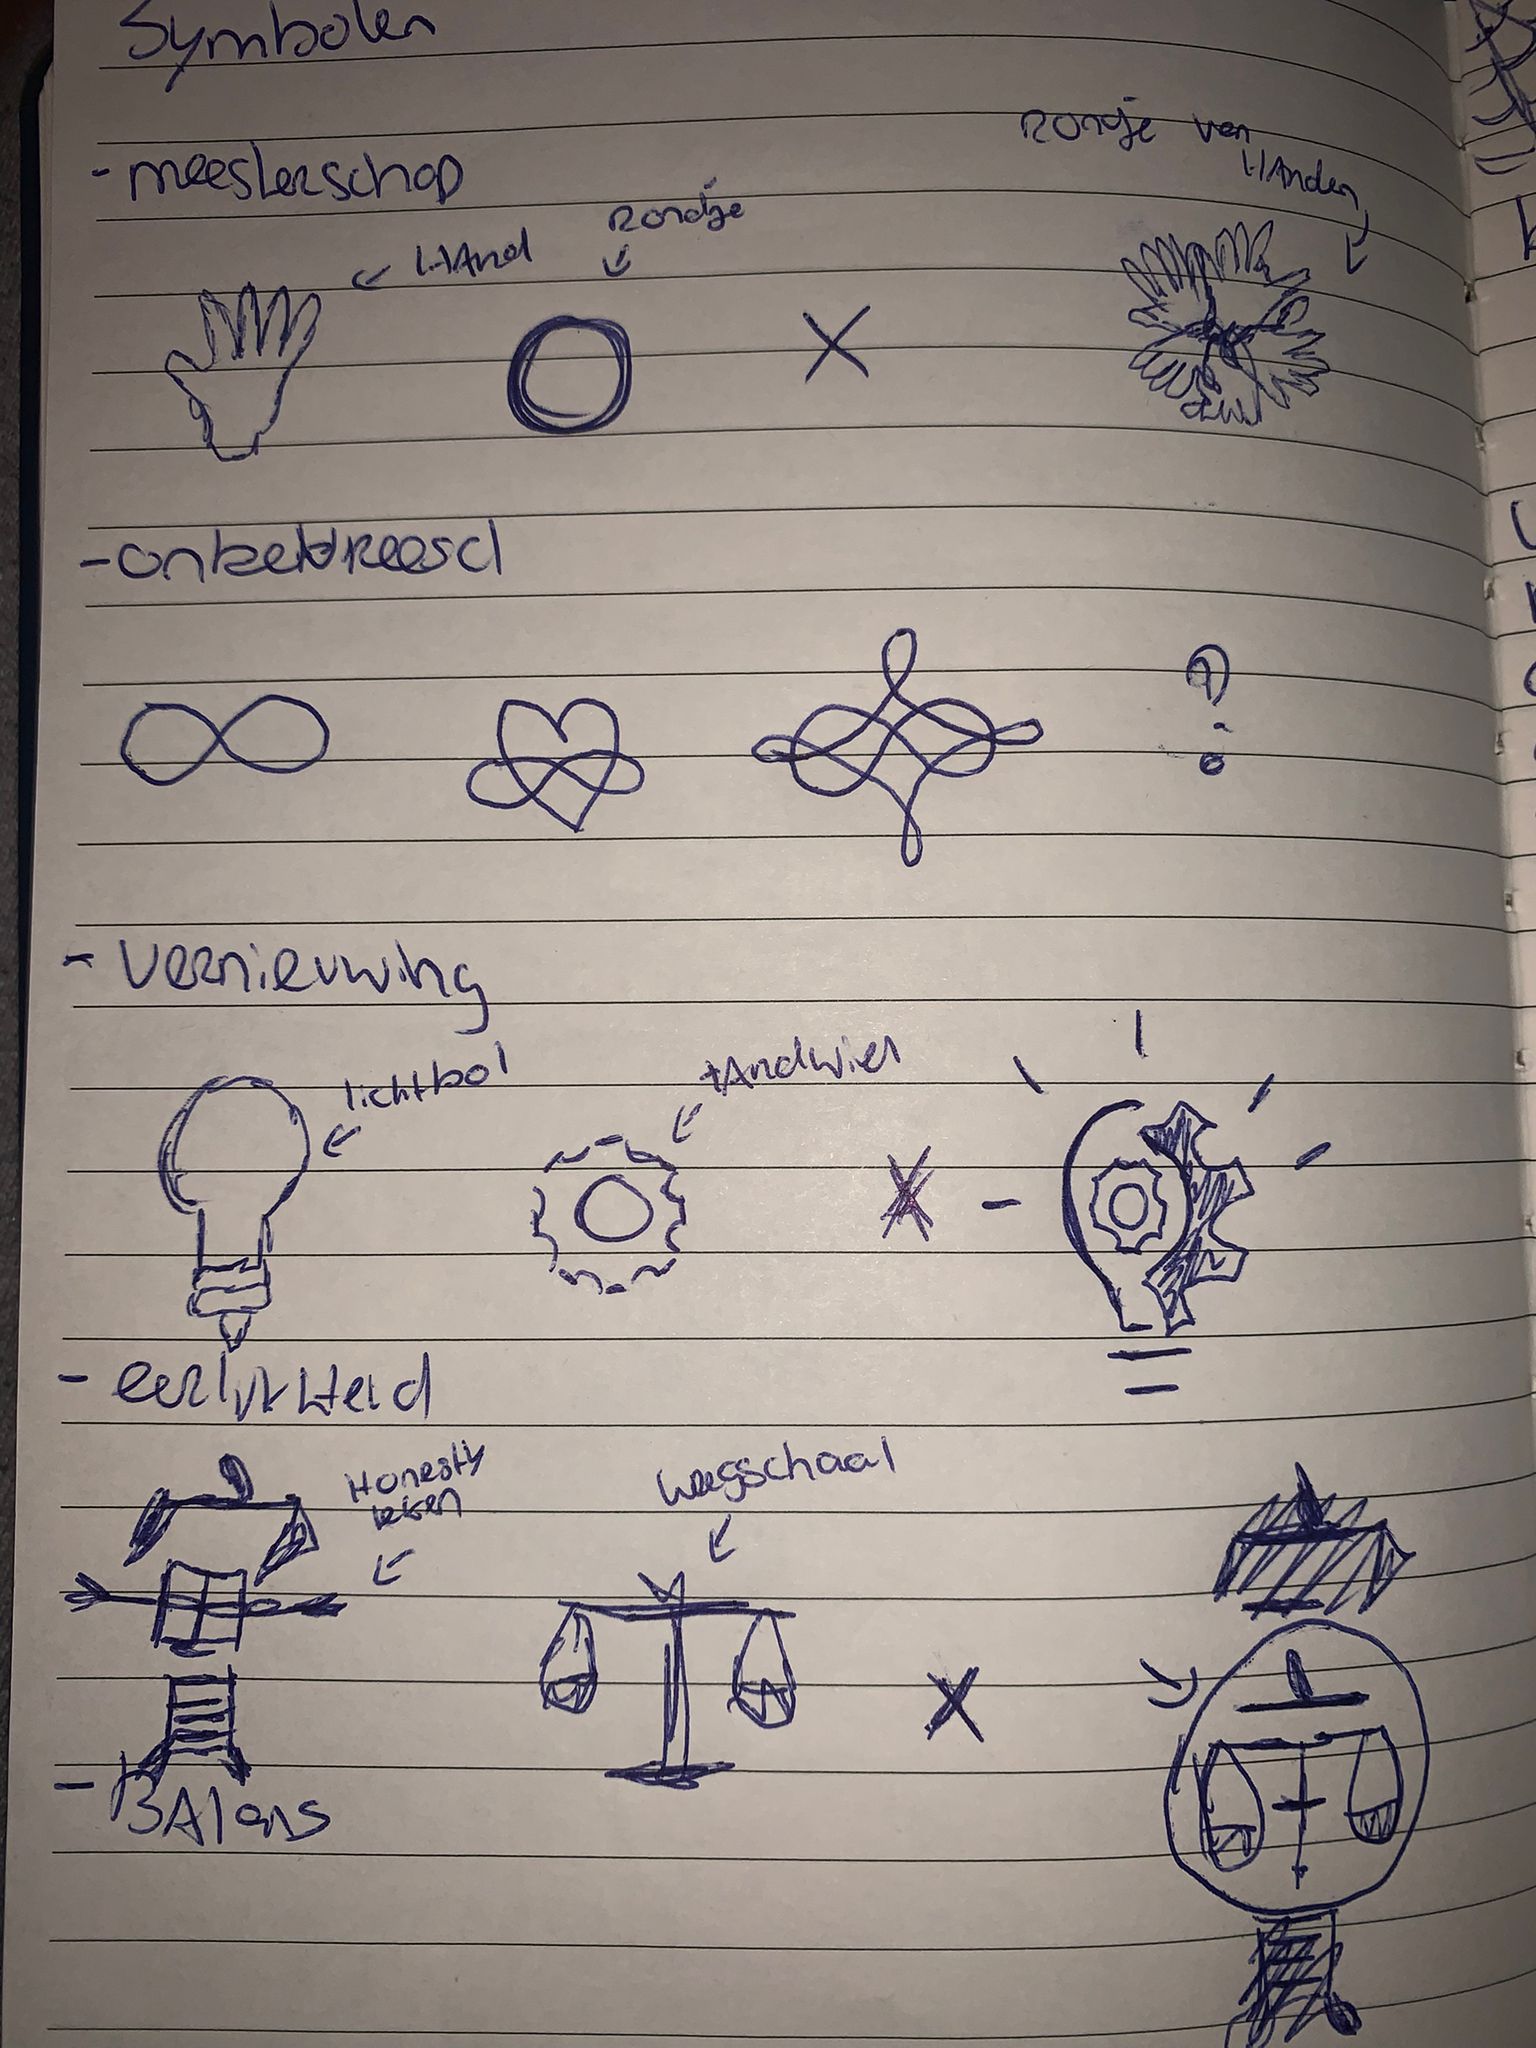 Symbolen
- meesterschap
Rondje van
HAnden
HAnd
Rondje
X
- onbevreesd
?
- vernieuwing
lichtbol
tAndwiel
X
- eerlijkHeid
Honesty
teken
weegschaal
X
- BAlans